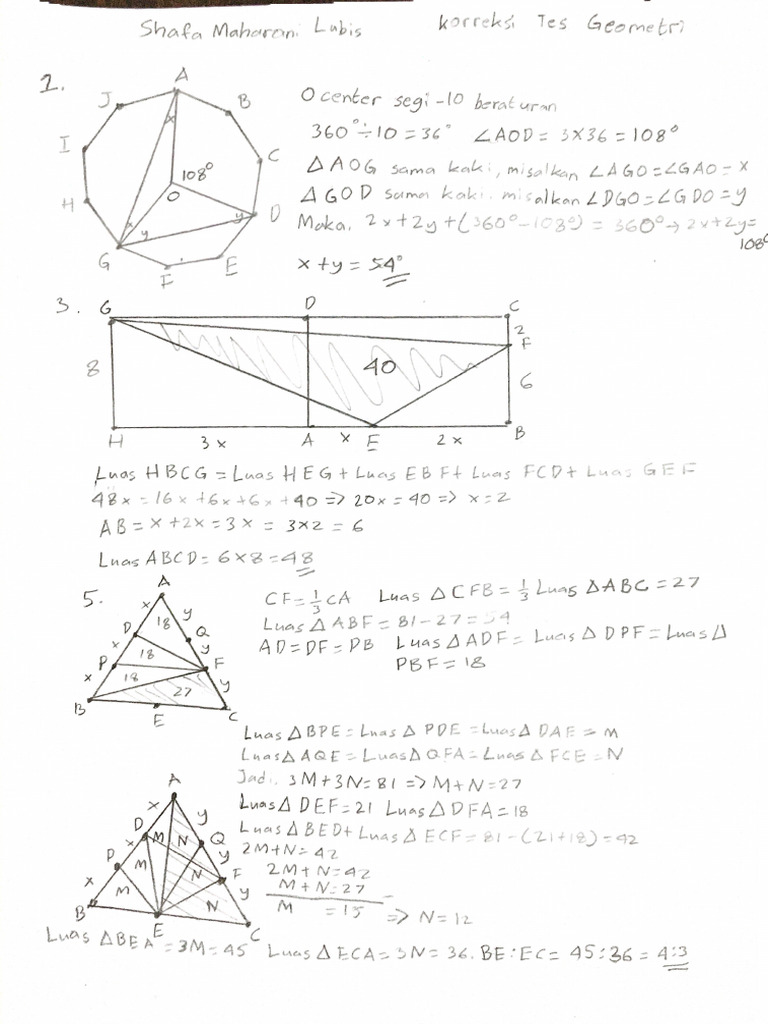 Shafa Maharani Lubis Korreksi Tes Geometri
2.
A
J
B
I
C
108°
x
O
H
D
x
y
y
G
F
E
O center segi-10 beraturan
360° ÷ 10 = 36° ∠AOD = 3x36 = 108°
△AOG sama kaki, misalkan ∠AGO = ∠GAO = x
△GOD sama kaki. misalkan ∠DGO = ∠GDO = y
Maka. 2x + 2y + (360° - 108°) = 360° → 2x + 2y = 108°
x + y = 54°
3.
G D C
2
F
8
40
6
H 3x A x E 2x B
Luas HBCG = Luas HEG + Luas EBF + Luas FCD + Luas GEF
48x = 16x + 6x + 6x + 40 => 20x = 40 => x = 2
AB = x + 2x = 3x = 3x2 = 6
Luas ABCD = 6x8 = 48
5.
A
x y
18
D Q
x 18 y
P F
x 18 y
27
B E C
CF = 1/3 CA Luas △CFB = 1/3 Luas △ABC = 27
Luas △ABF = 81 - 27 = 54
AD = DF = PB Luas △ADF = Luas △DPF = Luas △
PBF = 18
Luas △BPE = Luas △PDE = Luas △DAE = M
Luas △AQE = Luas △QFA = Luas △FCE = N
Jadi. 3M + 3N = 81 => M + N = 27
Luas △DEF = 21 Luas △DFA = 18
Luas △BED + Luas △ECF = 81 - (21 + 18) = 42
2M + N = 42
2M + N = 42
M + N = 27
M = 15 => N = 12
A
x y
D M N Q
x M y
P N F
x M y
N
B E C
Luas △BEA = 3M = 45 Luas △ECA = 3N = 36. BE : EC = 45 : 36 = 4:3